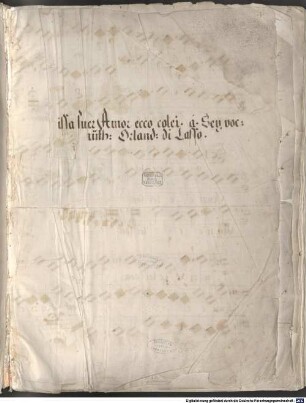 issa super Amor ecco colei. a. Sex voc:
Orland: di Lasso.
Digitalisierung gefördert durch die Deutsche Forschungsgemeinschaft